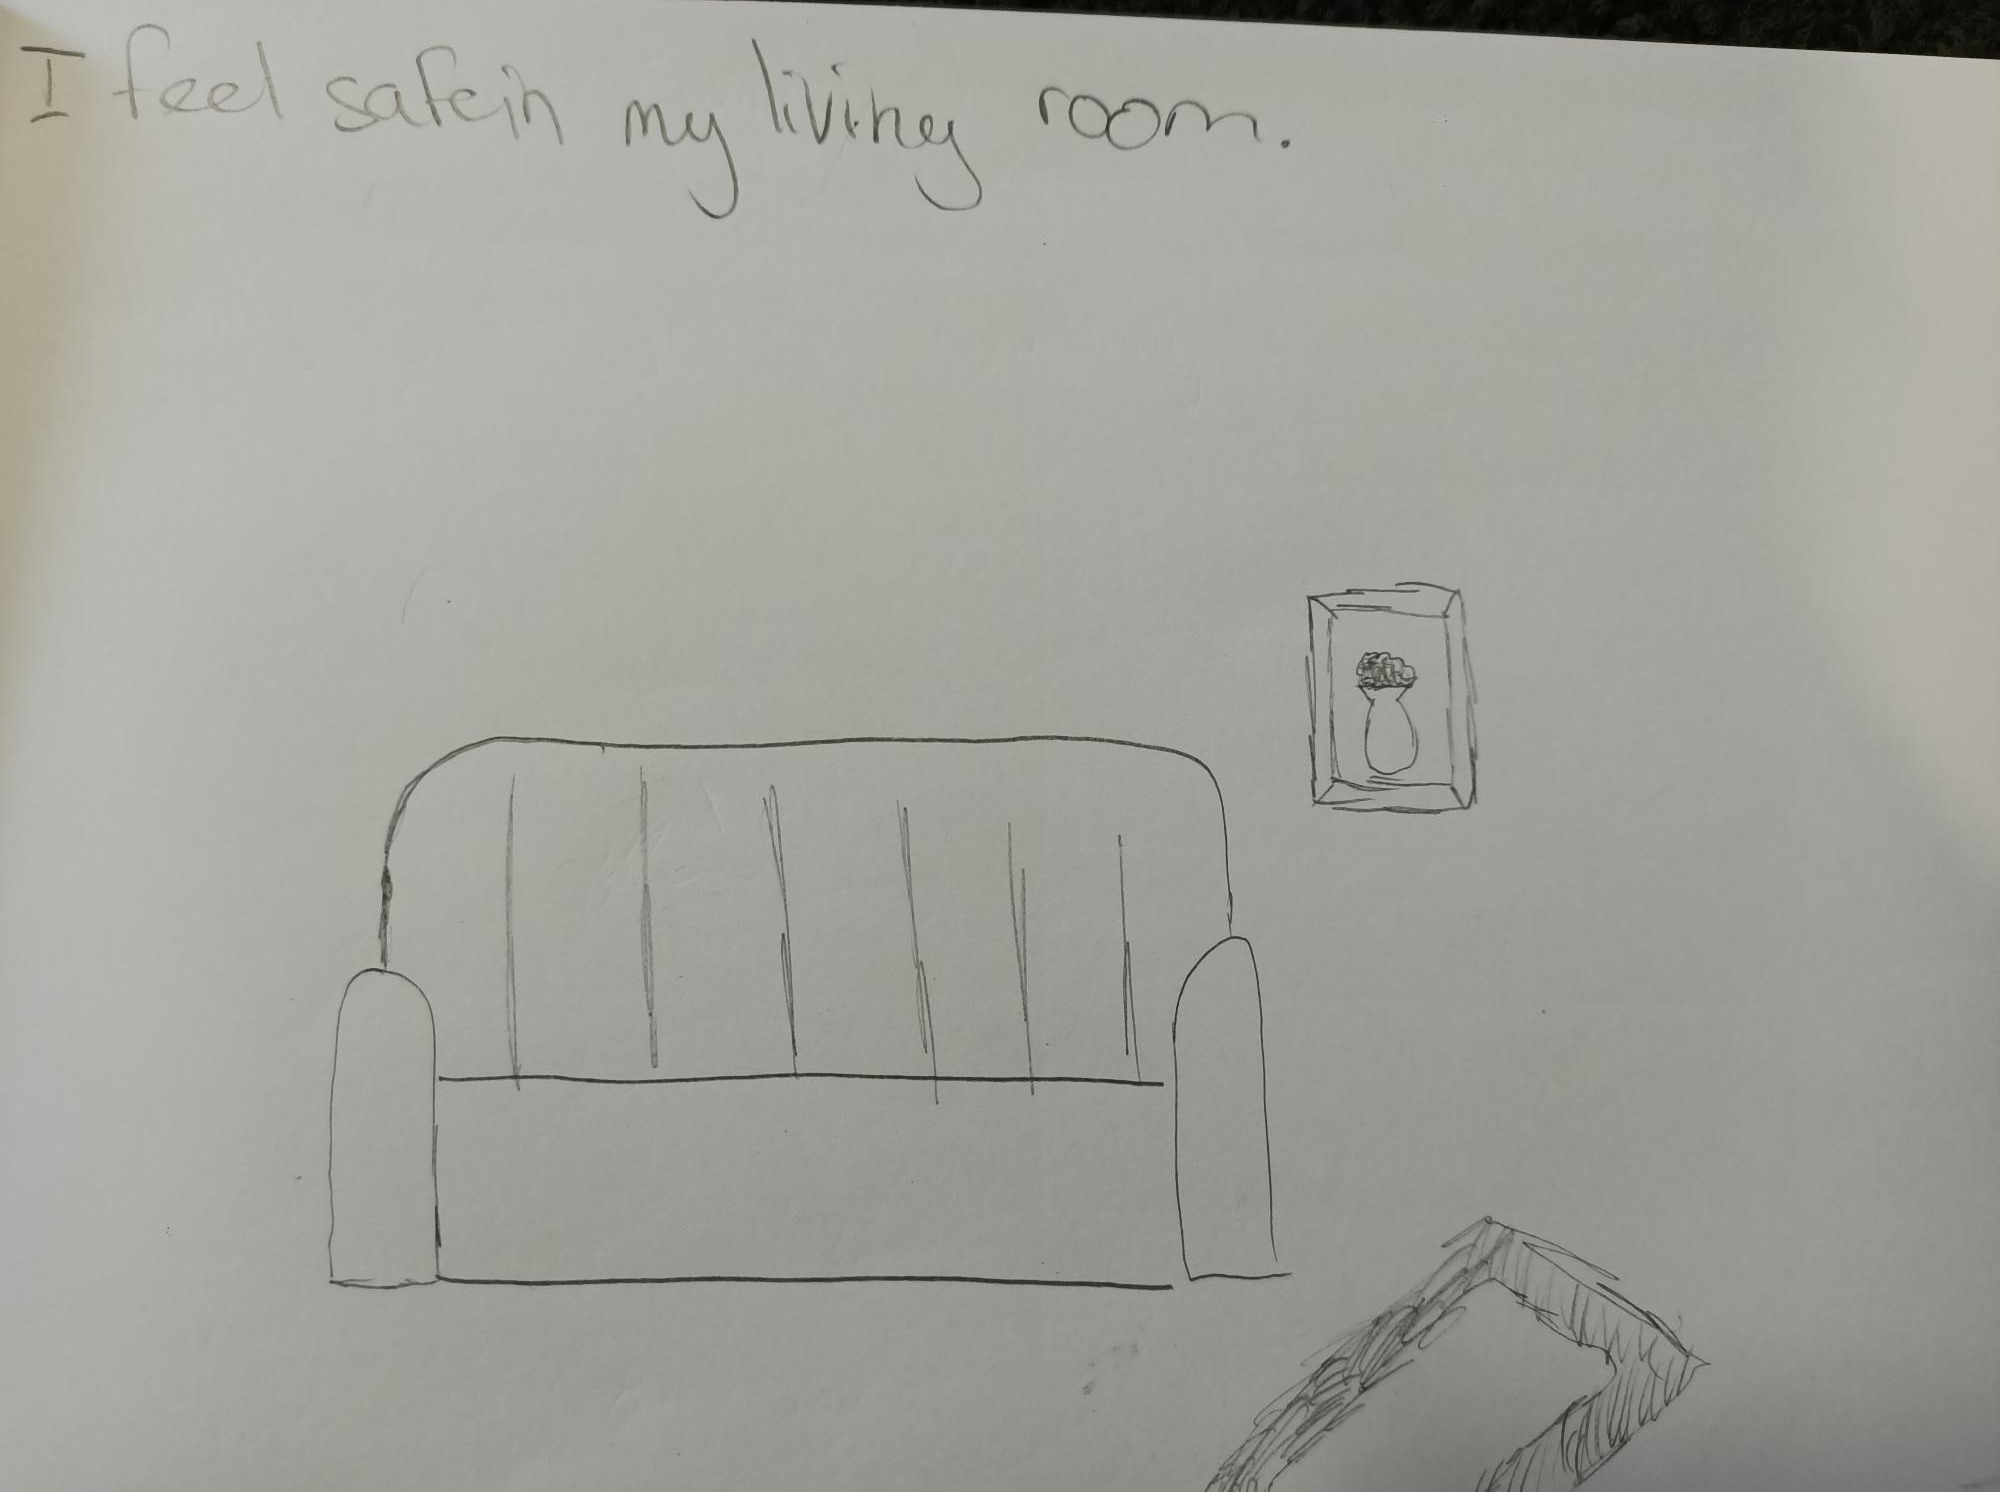 I feel safe in my living room.